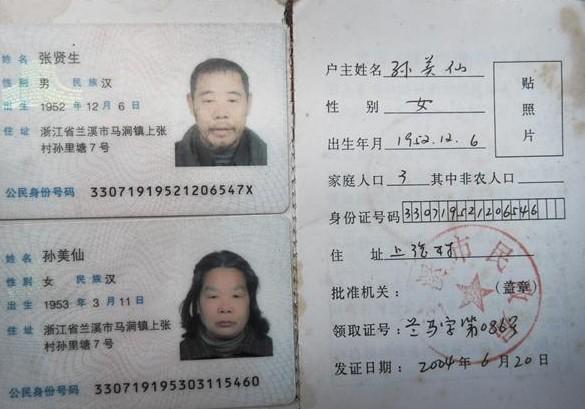 姓名 张贤生
性别 男 民族 汉
出生 1952 年 12 月 6 日
住址 浙江省兰溪市马涧镇上张
村孙里塘7号
公民身份号码 33071919521206547X
姓名 孙美仙
性别 女 民族 汉
出生 1953 年 3 月 11 日
住址 浙江省兰溪市马涧镇上张
村孙里塘7号
公民身份号码 330719195303115460
户主姓名 孙美仙
贴照片
性别 女
出生年月 1952.12.6
家庭人口 3 其中非农人口
身份证号码 330719521206546
住址 上张村
批准机关: (盖章)
领取证号: 兰马字第086号
发证日期: 2004年 6月20日